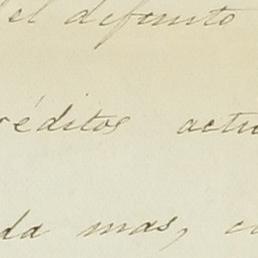 el difunto
réditos actu
da mas, c